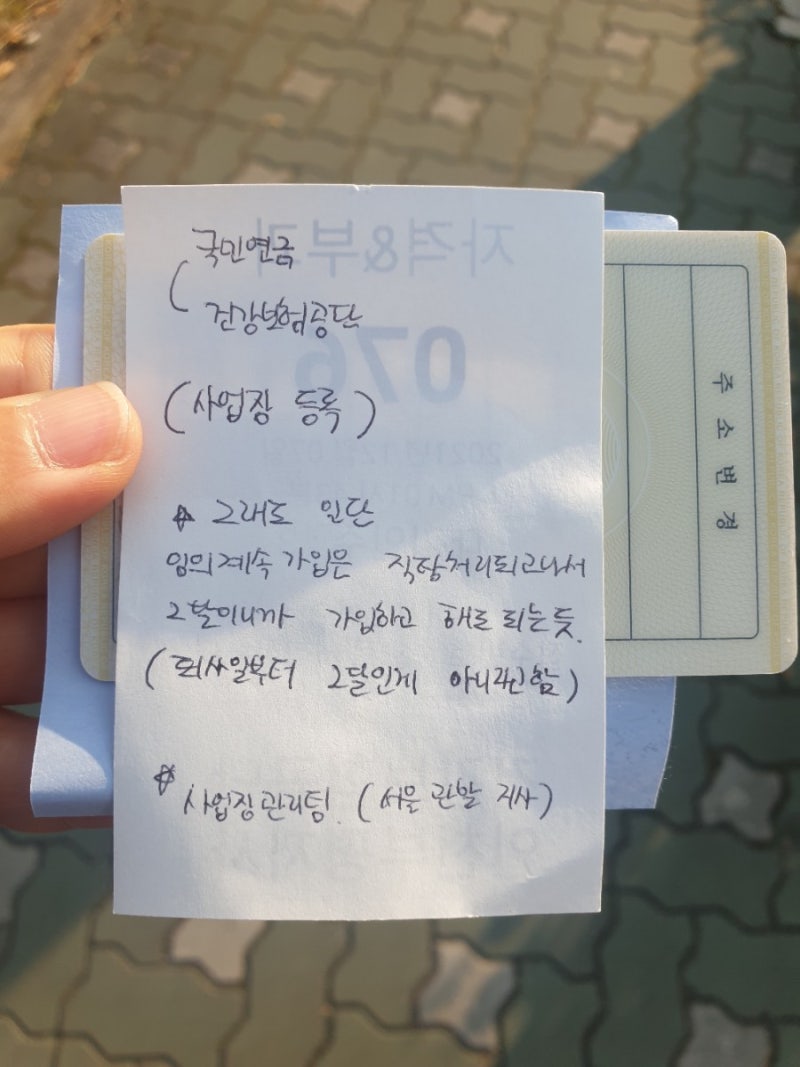 국민연금
건강보험공단
(사업장 등록)
그래도 일단
임의계속 가입은 직장처리되고나서
2달이니까 가입하고 해도 되는듯.
(퇴사일부터 2달인게 아니라고함)
사업장관리팀. (서울 관할 지사)
자격&부과
076
2021년 12월 07일
주소변경